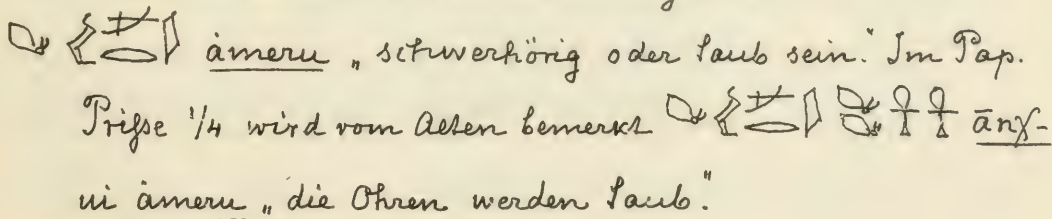 åmeru „schwerhörig oder taub sein.“ Im Pap.
Prisse 1/4 wird vom Alten bemerkt ānχ-
ui åmeru „die Ohren werden taub.“